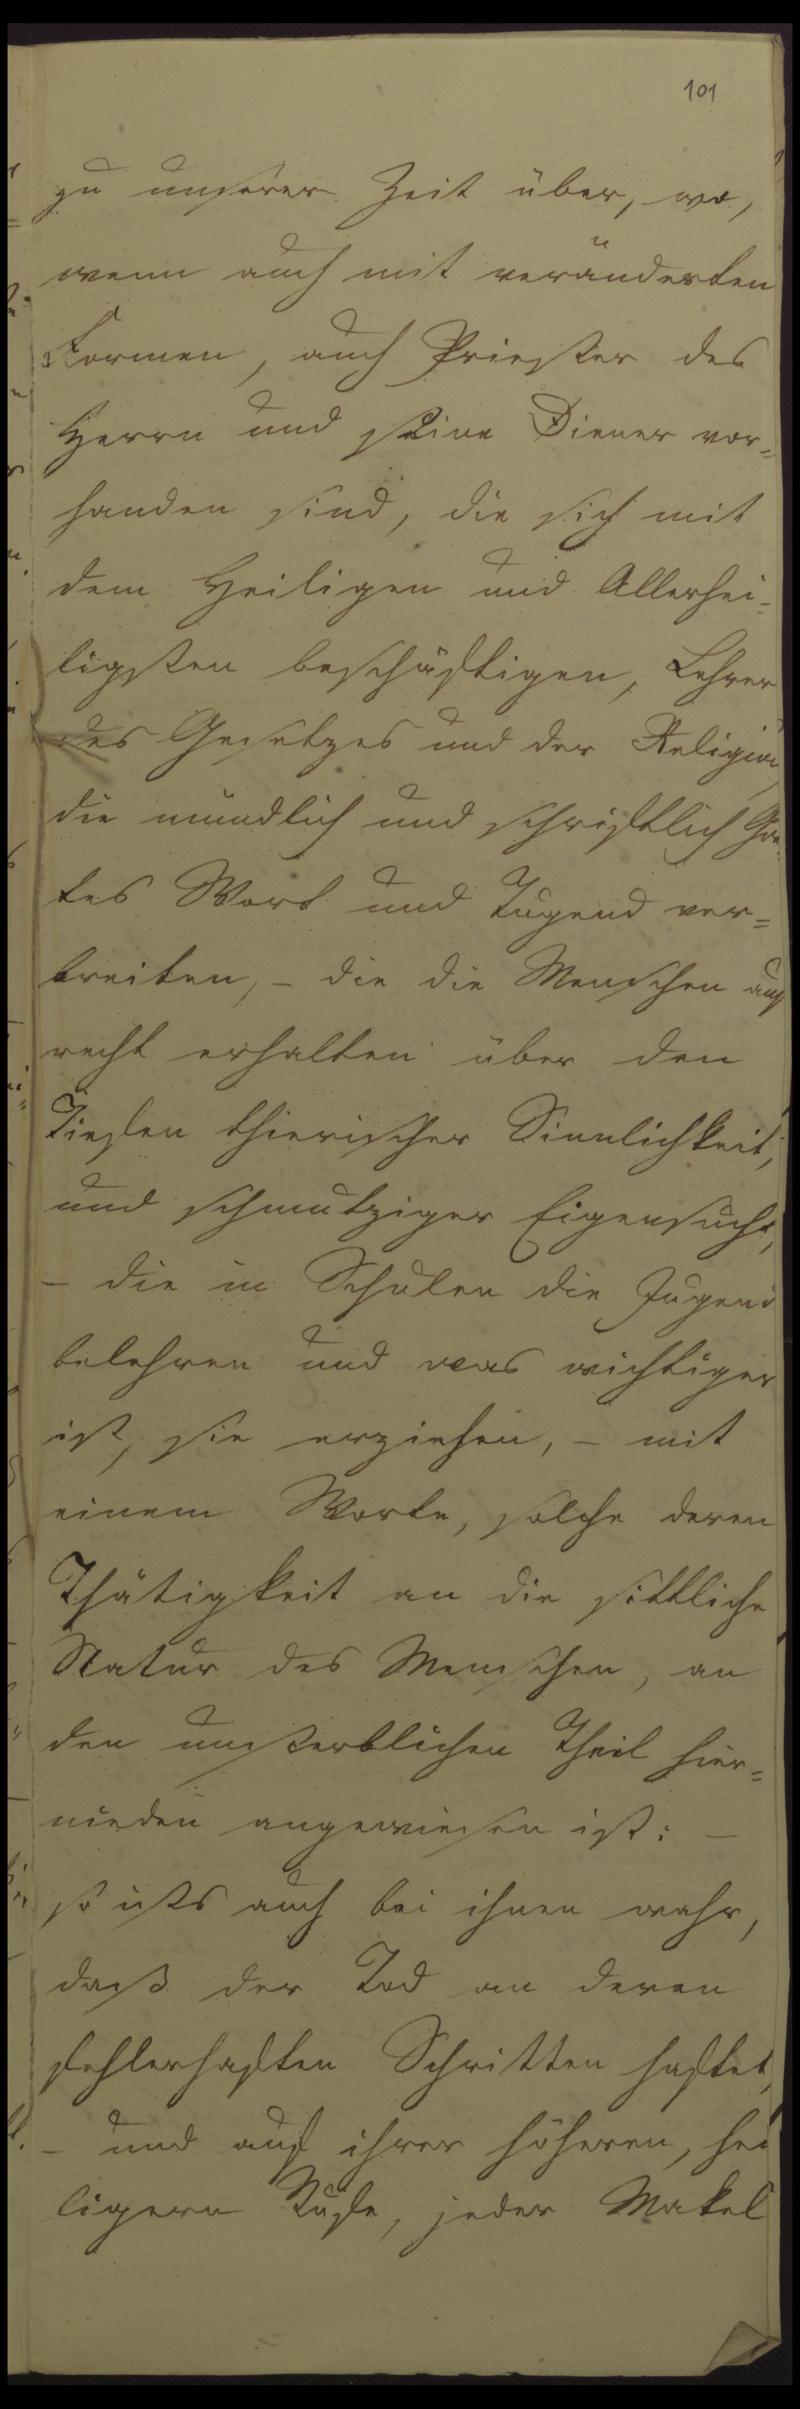 101
zu unserer Zeit über, wo,
wenn auch mit veränderten
Formen, auch Priester des
Herrn und seine Diener vor=
handen sind, die sich mit
dem Heiligen und Allerhei-
ligsten beschäftigen, Lehrer
des Gesetzes und der Religion,
die mündlich und schriftlich Got
tes Wort und Tugend ver=
breiten, – die die Menschen auf
recht erhalten über den
Tiefen thierischer Sinnlichkeit,
und schmutziger Eigensucht,
– die in Schulen die Jugend
belehren und was wichtiger
ist, sie erziehen, – mit
einem Worte, solche deren
Thätigkeit an die sittliche
Natur des Menschen, an
den unsterblichen Theil hier=
nieden angewiesen ist: –
so ists auch bei ihnen wahr,
daß der Tod an deren
fehlerhaften Schritten haftet,
– und auf ihrer höheren, hei
ligern Stufe, jeder Makel